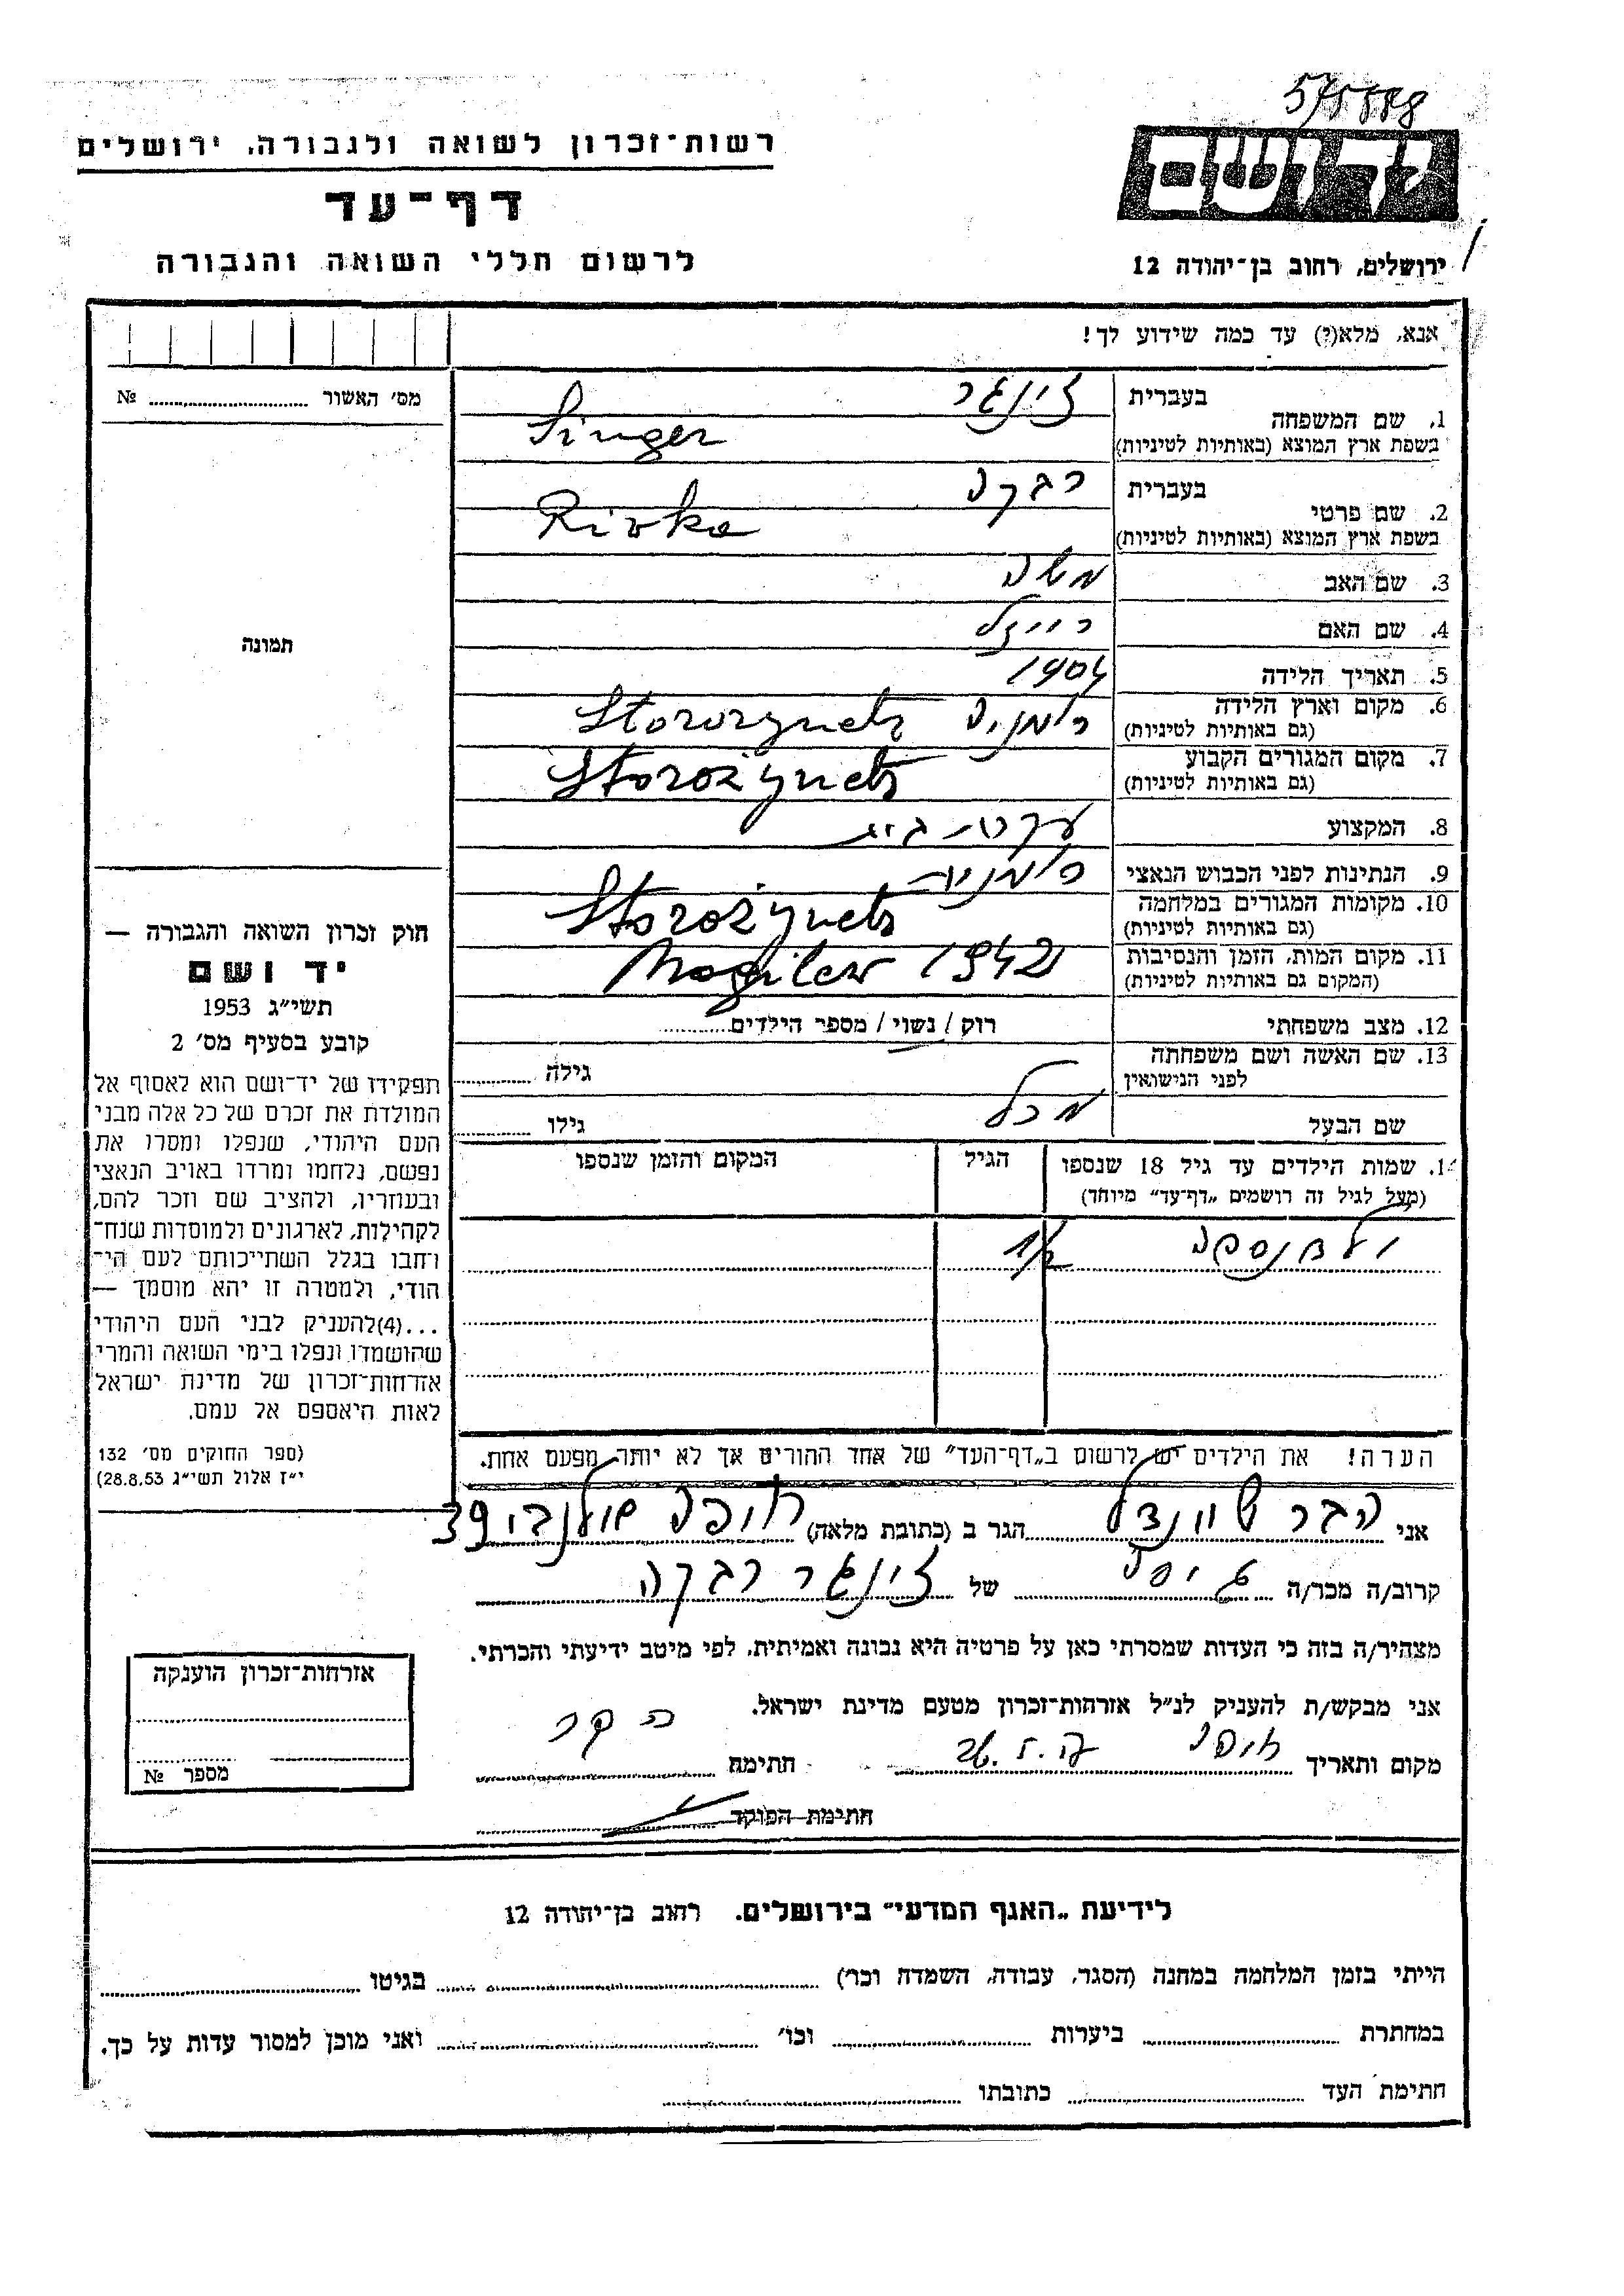 רשות־זכרון לשואה ולגבורה, ירושלים
דף־עד
לרשום חללי השואה והגבורה
יד ושם
ירושלים, רחוב בן־יהודה 12
אנא, מלא(י) עד כמה שידוע לך!
מס' האשור № 
תמונה
בעברית זינגר
1. שם המשפחה
בשפת ארץ המוצא (באותיות לטיניות) Singer
בעברית רבקה
2. שם פרטי
בשפת ארץ המוצא (באותיות לטיניות) Rivka
3. שם האב משה
4. שם האם רייזל
5. תאריך הלידה 1904
6. מקום וארץ הלידה רומניה Storozynetz
(גם באותיות לטיניות)
7. מקום המגורים הקבוע Storożynetz
(גם באותיות לטיניות)
8. המקצוע עקרת בית
9. הנתינות לפני הכבוש הנאצי רומנית
10. מקומות המגורים במלחמה Storożynetz
(גם באותיות לטיניות)
11. מקום המות, הזמן והנסיבות Mogilew 1942
(המקום גם באותיות לטיניות)
12. מצב משפחתי רוק / נשוי / מספר הילדים
13. שם האשה ושם משפחתה גילה
לפני הנישואין
שם הבעל מכל גילו
1. שמות הילדים עד גיל 18 שנספו הגיל המקום והזמן שנספו
(מעל לגיל זה רושמים „דף־עד" מיוחד)
1/2
הערה! את הילדים יש לרשום ב„דף־העד" של אחד ההורים אך לא יותר מפעם אחת.
חוק זכרון השואה והגבורה —
יד ושם
תשי״ג 1953
קובע בסעיף מס' 2
תפקידו של יד־ושם הוא לאסוף אל
המולדת את זכרם של כל אלה מבני
העם היהודי, שנפלו ומסרו את
נפשם, נלחמו ומרדו באויב הנאצי
ובעוזריו, ולהציב שם וזכר להם,
לקהילות, לארגונים ולמוסדות שנח־
רבו בגלל השתייכותם לעם הי־
הודי, ולמטרה זו יהא מוסמך —
...(4) להעניק לבני העם היהודי
שהושמדו ונפלו בימי השואה והמרי
אזרחות־זכרון של מדינת ישראל
לאות היאספם אל עמם.
(ספר החוקים מס' 132
י״ז אלול תשי״ג 28.8.53)
אני הגר ב (כתובת מלאה) 39
קרוב/ה מכר/ה של זינגר רבקה
מצהיר/ה בזה כי העדות שמסרתי כאן על פרטיה היא נכונה ואמיתית, לפי מיטב ידיעתי והכרתי.
אני מבקש/ת להעניק לנ״ל אזרחות־זכרון מטעם מדינת ישראל.
מקום ותאריך חתימה
חתימת הפוקד
אזרחות־זכרון הוענקה
מספר №
לידיעת „האגף המדעי" בירושלים. רחוב בן־יהודה 12
הייתי בזמן המלחמה במחנה (הסגר, עבודה, השמדה וכו') בגיטו
במחתרת ביערות וכו' ואני מוכן למסור עדות על כך.
חתימת העד כתובתו